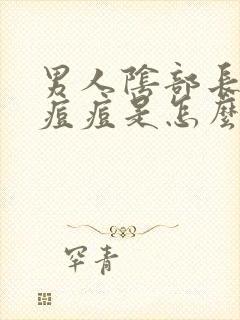 男人陰部長
痘痘是怎麼
罕青